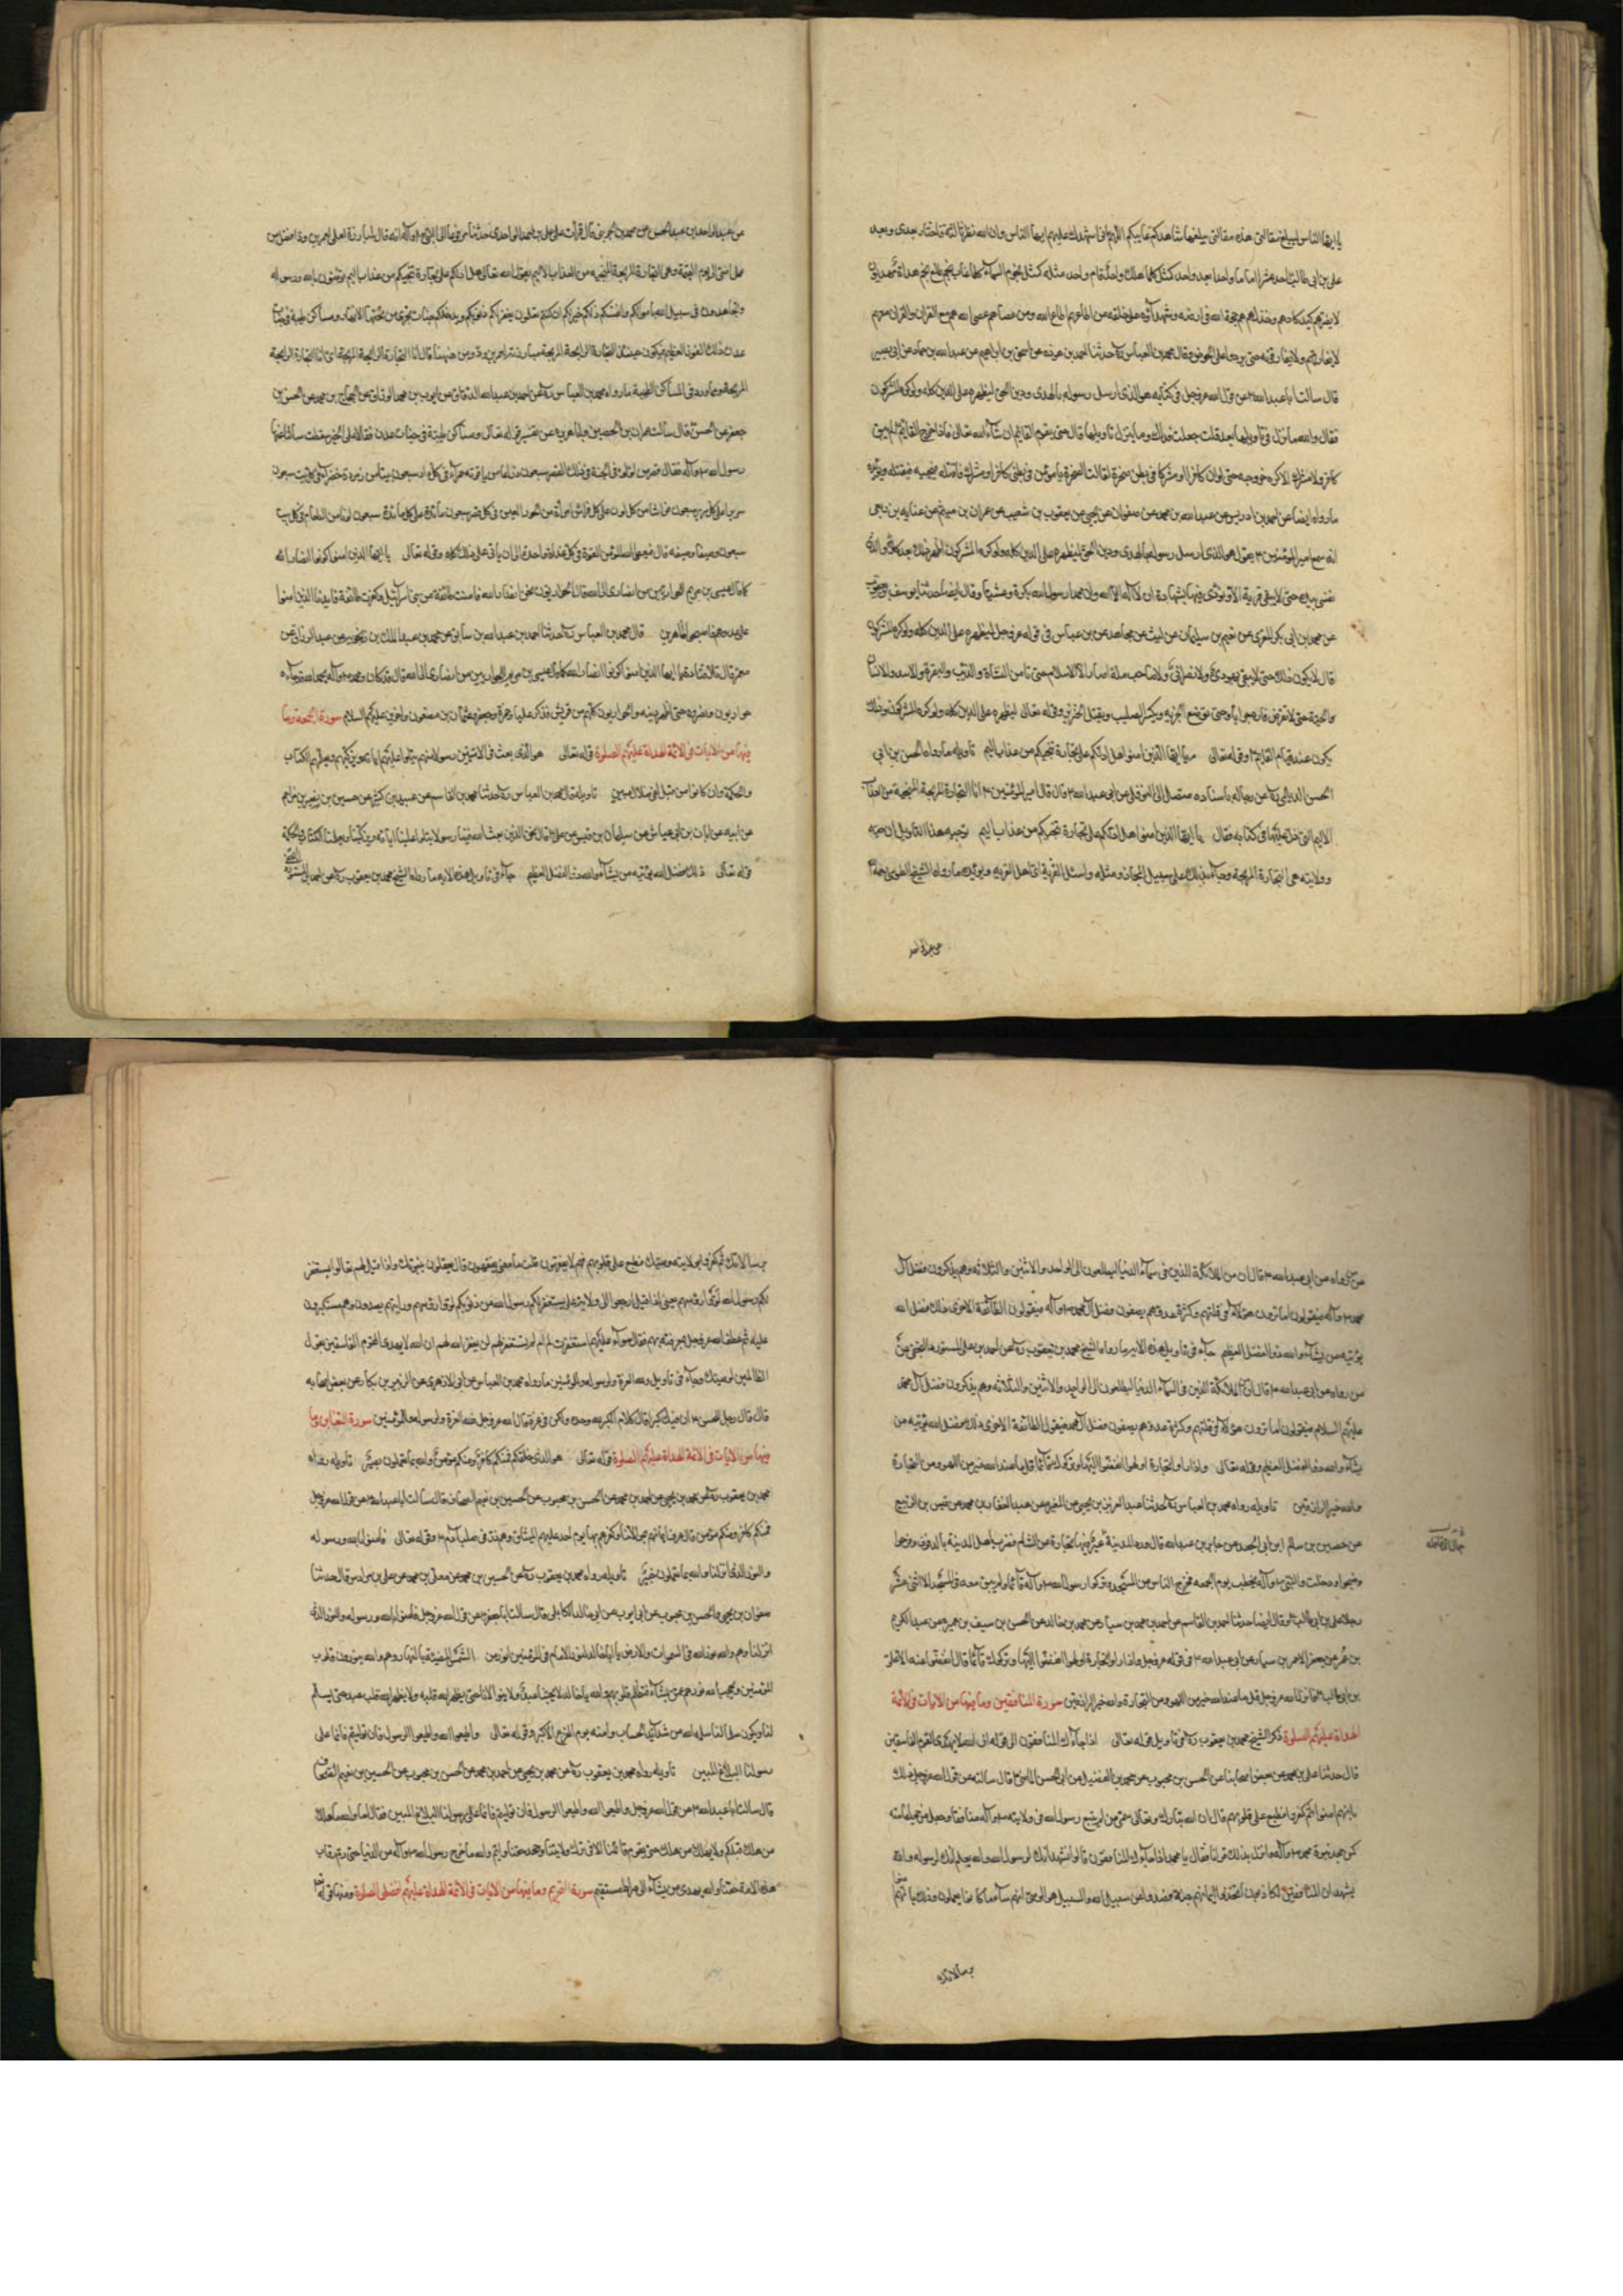 يا ايها الناس ليبلغ مقالتي هذه شاهدكم غايبكم اللهم اني اشهدك عليهم ايها الناس وان الله نظر ثالثة فاختار بعدي وبعد
علي بن ابي طالب احد عشر اماما واحدا بعد واحد كلما هلك واحد قام واحد مثله كمثل نجوم السماء كلما غاب نجم طلع نجم هداة مهديون
لا يضرهم كيد من كادهم وخذلهم هم حجة الله في ارضه وشهداؤه على خلقه من اطاعهم اطاع الله ومن عصاهم عصى الله هم مع القران والقران معهم
لا يفارقهم ولا يفارقونه حتى يردوا على الحوض وقال محمد بن العباس ره حدثنا احمد بن هوذه عن اسحق بن ابراهيم عن عبد الله بن حماد عن ابي بصير
قال سالت ابا عبد الله ع عن قول الله عز وجل في كتابه هو الذي ارسل رسوله بالهدى ودين الحق ليظهره على الدين كله ولو كره المشركون
فقال والله ما نزل تاويلها بعد قلت جعلت فداك ومتى ينزل تاويلها قال حين يقوم القائم ان شاء الله تعالى فاذا خرج القائم ع لم يبق
كافر ولا مشرك الا كره خروجه حتى لو ان كافرا او مشركا في بطن صخرة لقالت الصخرة يا مؤمن في بطني كافر او مشرك فاقتله فيجيبه فيقتله
ما رواه ايضا عن احمد بن ادريس عن عبد الله بن محمد عن صفوان بن يحيى عن يعقوب بن شعيب عن عمران بن ميثم عن عباية بن ربعي
انه سمع امير المؤمنين ع يقول هو الذي ارسل رسوله بالهدى ودين الحق ليظهره على الدين كله ولو كره المشركون اظهر ذلك بعد كلا والذي
نفسي بيده حتى لا يبقى قرية الا ونودي فيها بشهادة ان لا اله الا الله وان محمدا رسول الله بكرة وعشيا وقال ايضا حدثنا يوسف بن يعقوب
عن محمد بن ابي بكر المقري عن نعيم بن سليمان عن ليث عن مجاهد عن بن عباس في قوله عز وجل ليظهره على الدين كله ولو كره المشركون
قال لا يكون ذلك حتى لا يبقى يهودي ولا نصراني ولا صاحب ملة الا الاسلام حتى تامن الشاة والذئب والبقرة والاسد والانسان
والحية حتى لا تقرض فارة جرابا وحتى توضع الجزية ويكسر الصليب ويقتل الخنزير وقوله تعالى ليظهره على الدين كله ولو كره المشركون وذلك
يكون عند قيام القايم ع وقوله تعالى يا ايها الذين امنوا هل ادلكم على تجارة تنجيكم من عذاب اليم تاويله ما رواه الحسن بن ابي
الحسن الديلمي ره عن رجاله باسناده متصل الى النوفلي عن ابي عبد الله ع قال قال امير المؤمنين ع انا التجارة المربحة المنجية من العذاب
الاليم التي دل الله عليها في كتابه فقال يا ايها الذين امنوا هل ادلكم على تجارة تنجيكم من عذاب اليم توجيه هذا التاويل ان حبه
وولايته هي التجارة المربحة وجاء ذلك على سبيل المجاز ومثله واسئل القرية اي اهل القرية ويؤيده ما رواه الشيخ الطوسي رحمه الله
عن عبد الواحد
عن عبد الواحد بن الحسن عن محمد بن قال قرات على علي بن احمد الواحدي حدثنا مرفوعا الى النبي ص واله انه قال لمبارزة لعلي لعمرو بن ود افضل من
عمل امتي الى يوم القيمة وهي التجارة المربحة المنجية من العذاب الاليم يقول الله تعالى هل ادلكم على تجارة تنجيكم من عذاب اليم تؤمنون بالله ورسوله
وتجاهدون في سبيل الله باموالكم وانفسكم ذلكم خير لكم ان كنتم تعلمون يغفر لكم ذنوبكم ويدخلكم جنات تجري من تحتها الانهار ومساكن طيبة في جنات
عدن ذلك الفوز العظيم فيكون حينئذ التجارة الرابحة المربحة مبارزته لعمرو بن ود ومن هيهنا قال انا التجارة الرابحة المربحة اي انا صاحب التجارة الرابحة
المربحة ومما ورد في المساكن الطيبة ما رواه محمد بن العباس ره عن احمد بن عبد الله الدقاق عن ايوب بن محمد الوراق عن الحجاج بن محمد عن الحسن بن
جعفر عن الحسن قال سالت عمران بن الحصين وابا هريرة عن تفسير قوله تعالى ومساكن طيبة في جنات عدن فقالا على الخبير سقطت سالنا عنها
رسول الله ص واله فقال قصر من لؤلؤ في الجنة في ذلك القصر سبعون دارا من ياقوته حمراء في كل دار سبعون بيتا من زمردة خضراء في كل بيت سبعون
سريرا على كل سرير سبعون فراشا من كل لون على كل فراش امراة من الحور العين في كل قصر سبعون مائدة على كل مائدة سبعون لونا من الطعام في كل بيت
سبعون وصيفا ووصيفة قال فيعطي الله المؤمن من القوة في كل غداة واحدة ان ياتي على ذلك كله وقوله تعالى يا ايها الذين امنوا كونوا انصار الله
كما قال عيسى بن مريم للحواريين من انصاري الى الله قال الحواريون نحن انصار الله فامنت طائفة من بني اسرائيل وكفرت طائفة فايدنا الذين امنوا
على عدوهم فاصبحوا ظاهرين قال محمد بن العباس ره حدثنا احمد بن عبد الله بن سابق عن محمد بن عبد الملك بن زنجويه عن عبد الرزاق عن
معمر قال تلا قتادة يا ايها الذين امنوا كونوا انصار الله كما قال عيسى بن مريم للحواريين من انصاري الى الله قال قد كان ومحمد ص واله بحمد الله قد جاءه
حواريون ونصروه حتى اظهر دينه والحواريون كلهم من قريش فذكر عليا وحمزة وجعفر وعثمان بن مظعون واخرين عليهم السلام سورة الجمعة وما
فيها من الايات في الائمة الهداة عليهم الصلوة قوله تعالى هو الذي بعث في الاميين رسولا منهم يتلوا عليهم اياته ويزكيهم ويعلمهم الكتاب
والحكمة وان كانوا من قبل لفي ضلال مبين تاويله قال محمد بن العباس ره حدثنا محمد بن القاسم عن عبيد بن كثير عن حسين بن نصر بن مزاحم
عن ابيه عن ابان بن ابي عياش عن سليمان بن قيس عن علي ع قال نحن الذين بعث الله فينا رسولا يتلوا علينا اياته ويزكينا ويعلمنا الكتاب والحكمة
قوله تعالى ذلك فضل الله يؤتيه من يشاء والله ذو الفضل العظيم جاء في تاويل هذه الاية ما رواه الشيخ محمد بن يعقوب ره عن
عمن رواه عن ابي عبد الله ع قال ان من الملائكة الذين في سماء الدنيا ليطلعون الى الواحد والاثنين والثلاثه وهم يذكرون فضل آل
محمد ص واله فيقولون اما ترون هؤلاء في قلتهم وكثرة عدوهم يصفون فضل آل محمد ص واله فيقولون الطائفة الاخرى ذلك فضل الله
يؤتيه من يشاء والله ذو الفضل العظيم جاء في تاويل هذه الايه ما رواه الشيخ محمد بن يعقوب ره عن احمد بن علي المستورد النخعي عن
من رواه عن ابي عبد الله ع قال ان الملائكة الذين في السماء الدنيا ليطلعون الى الواحد والاثنين والثلاثه وهم يذكرون فضل آل محمد
عليهم السلام فيقولون اما ترون هؤلاء في قلتهم وكثرة عدوهم يصفون فضل آل محمد فيقول الطائفة الاخرى ذلك فضل الله يؤتيه من
يشاء والله ذو الفضل العظيم وقوله تعالى واذا راوا تجارة او لهوا انفضوا اليها وتركوك قائما قل ما عند الله خير من اللهو ومن التجارة
والله خير الرازقين تاويله رواه محمد بن العباس ره حدثنا عبد العزيز بن يحيى عن المغيرة عن عبد الغفار بن محمد عن قيس بن الربيع
عن حصين بن سالم ابن ابي الجعد عن جابر بن عبد الله قال ورد المدينة عير فيها تجارة من الشام فضرب اهل المدينة بالدفوف وفرحوا
وضجوا ودخلت والنبي ص واله يخطب يوم الجمعة فخرج الناس من المسجد وتركوا رسول الله ص واله قائما ولم يبق معه في المسجد الا اثنى عشر
رجلا علي بن ابي طالب ع وقال ايضا حدثنا احمد بن القاسم عن احمد بن محمد بن سيار عن محمد بن خالد عن الحسن بن سيف بن عميرة عن عبد الكريم
بن عمرو عن جعفر الاحمر بن سيار عن ابي عبد الله ع في قوله عز وجل واذا راوا تجارة او لهوا انفضوا اليها وتركوك قائما قال انفضوا عنه الا علي
بن ابي طالب ع فانزل الله عز وجل قل ما عند الله خير من اللهو ومن التجارة والله خير الرازقين سورة المنافقين وما فيها من الايات في الائمة
الهداة عليهم الصلوة ذكر الشيخ محمد بن يعقوب ره في تاويل قوله تعالى اذا جاءك المنافقون الى قوله ان الله لا يهدي القوم الفاسقين
قال حدثنا علي بن محمد عن بعض اصحابنا عن الحسن بن محبوب عن محمد بن الفضيل عن ابي الحسن الماضي ع قال سالته عن قول الله عز وجل ذلك
بانهم امنوا ثم كفروا فطبع على قلوبهم قال ان الله تبارك وتعالى سمى من لم يتبع رسول الله في ولايته ص واله منافقا وجعل من جحد امامته
كمن جحد نبوة محمد ص واله وانزل بذلك قرانا فقال يا محمد اذا جاءك المنافقون قالوا نشهد انك لرسول الله والله يعلم انك لرسوله والله
يشهد ان المنافقين لكاذبون اتخذوا ايمانهم جنة فصدوا عن سبيل الله والسبيل هو الوصي انهم ساء ما كانوا يعملون ذلك بانهم
برسالاتك
برسالاتك ثم كفروا بولاية وصيك فطبع على قلوبهم فهم لا يفقهون قلت ما معنى يفقهون قال يعقلون بنبوتك واذا قيل لهم تعالوا يستغفر
لكم رسول الله لووا رؤسهم يعني اذا قيل ارجعوا الى ولاية علي يستغفر لكم رسول الله من ذنوبكم لووا رؤسهم ورايتهم يصدون وهم مستكبرون
عليه ثم عطف الله عز وجل بمعرفته بهم فقال سواء عليهم استغفرت لهم ام لم تستغفر لهم لن يغفر الله لهم ان الله لا يهدي القوم الفاسقين يقول
الظالمين لوصيك وجاء في تاويل ولله العزة ولرسوله وللمؤمنين ما رواه محمد بن العباس عن ابي الازهر عن الزبير بن بكار عن بعض اصحابه
قال قال رجل للحسن ع ان فيك كبرا قال كلا الكبر لله وحده ولكن في عزة قال الله عز وجل فلله العزة ولرسوله وللمؤمنين سورة التغابن وما
فيها من الايات في الائمة الهداة عليهم الصلوة قوله تعالى هو الذي خلقكم فمنكم كافر ومنكم مؤمن والله بما تعملون بصير تاويله رواه
محمد بن يعقوب ره عن محمد بن يحيى عن احمد بن محمد عن الحسن بن محبوب عن الحسين بن نعيم الصحاف قال سالت ابا عبد الله ع عن قول الله عز وجل
فمنكم كافر ومنكم مؤمن قال عرف ايمانهم بولايتنا وكفرهم بها يوم اخذ عليهم الميثاق وهم ذر في صلب ادم ع وقوله تعالى فامنوا بالله ورسوله
والنور الذي انزلنا والله بما تعملون خبير تاويله رواه محمد بن يعقوب ره عن الحسين بن محمد عن معلى بن محمد عن علي بن مرداس قال حدثنا
صفوان بن يحيى والحسن بن محبوب عن ابي ايوب عن ابي خالد الكابلي قال سالت ابا جعفر ع عن قول الله عز وجل فامنوا بالله ورسوله والنور الذي
انزلنا وهم والله نور الله في السموات والارض يا ابا خالد لنور الامام في المؤمنين انور من الشمس المضيئة بالنهار وهم والله ينورون قلوب
المؤمنين ويحجب الله نورهم عمن يشاء فتظلم قلوبهم والله يا ابا خالد لا يحبنا عبد ويتولانا حتى يطهر الله قلبه ولا يطهر الله قلب عبد حتى يسلم
لنا ويكون سلما لنا سلمه الله من شديد الحساب وامنه يوم الفزع الاكبر وقوله تعالى واطيعوا الله واطيعوا الرسول فان توليتم فانما على
رسولنا البلاغ المبين تاويله رواه محمد بن يعقوب ره عن محمد بن يحيى عن احمد بن محمد عن الحسن بن محبوب عن الحسين بن نعيم الصحاف
قال سالت ابا عبد الله ع عن قول الله عز وجل واطيعوا الله واطيعوا الرسول فان توليتم فانما على رسولنا البلاغ المبين فقال اما والله ما هلك
من هلك قبلكم ولا يهلك من هلك حتى يقوم قائمنا الا في ترك ولايتنا وجحد حقنا وايم والله ما خرج رسول الله ص واله من الدنيا حتى رقاب
هذه الامة حقنا والله يهدي من يشاء الى صراط مستقيم سورة التحريم وما فيها من الايات في الائمة الهداة عليهم افضل الصلوة ومنها قوله